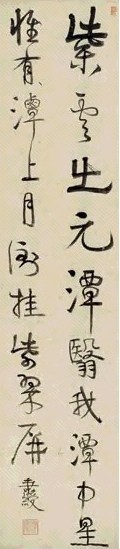 紫雲出元潭翳我潭中星
惟有潭上月倒挂紫翠屏